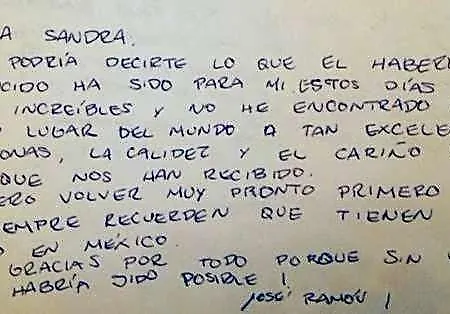 A SANDRA.
PODRÍA DECIRTE LO QUE EL HABER
CIDO HA SIDO PARA MI ESTOS DÍAS
INCREÍBLES Y NO HE ENCONTRADO
LUGAR DEL MUNDO A TAN EXCELE
ONAS, LA CALIDEZ Y EL CARIÑO
QUE NOS HAN RECIBIDO.
ERO VOLVER MUY PRONTO PRIMERO
EMPRE RECUERDEN QUE TIENEN
EN MÉXICO.
GRACIAS POR TODO PORQUE SIN
HABRÍA SIDO POSIBLE!
JOSÉ RAMÓN